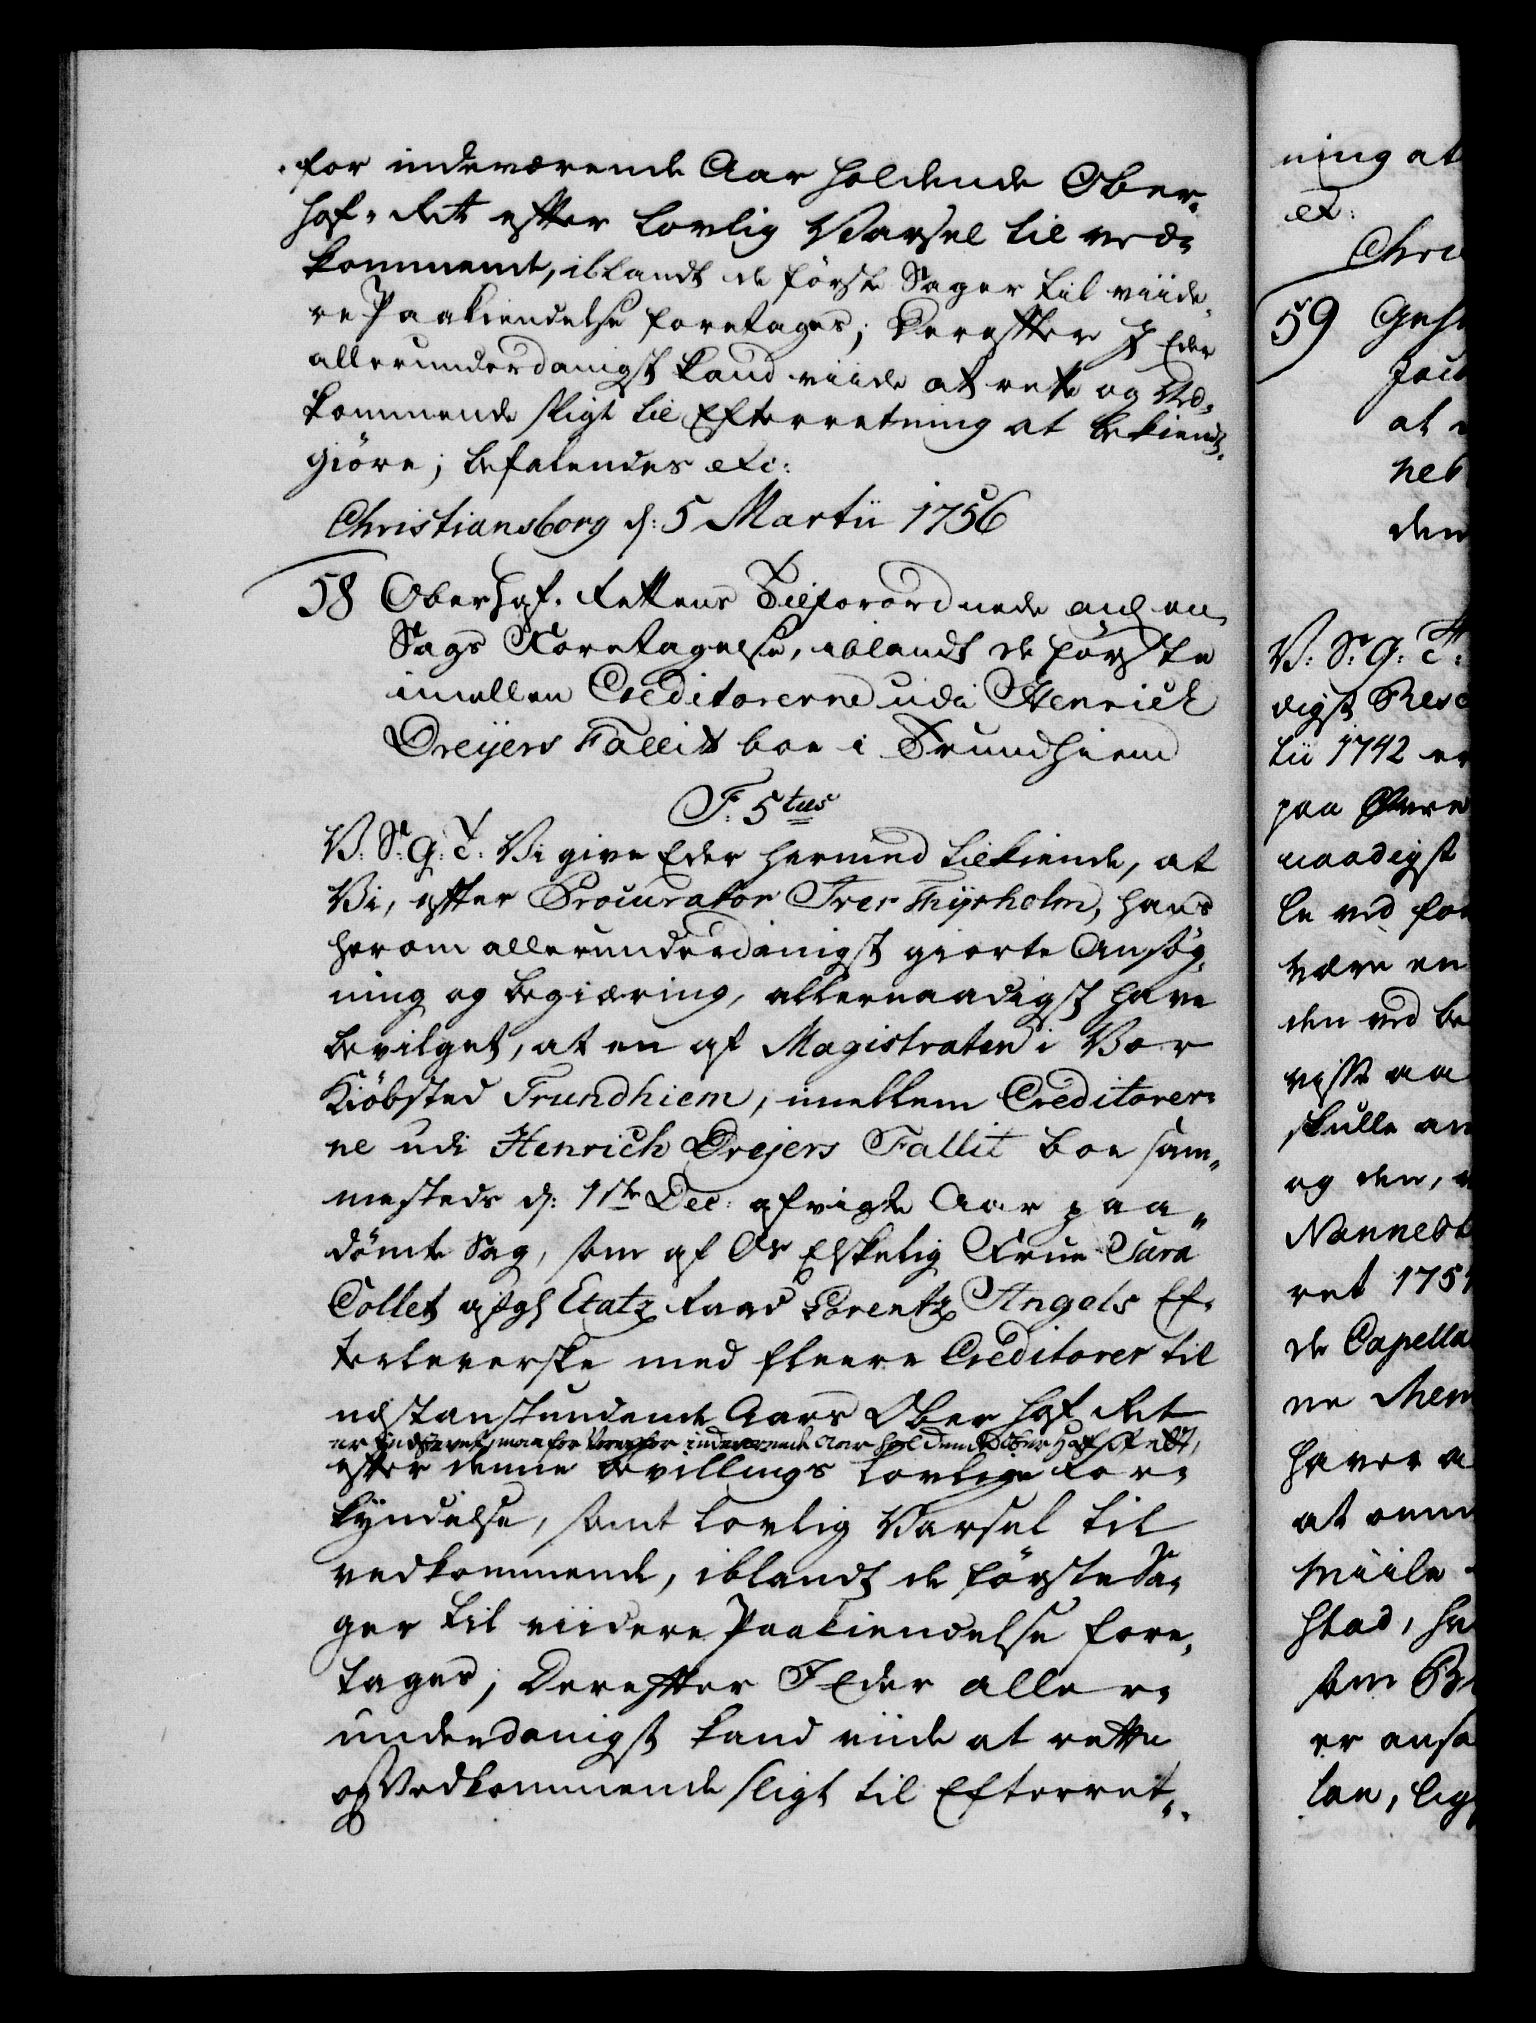 for indeværende Aar holdende Ober-
hof-Ret efter lovlig Varsel til ved-
kommende, iblandt de første Sager til viide-
re Paakiendelse foretages; Derefter I Eder
allerunderdanigst kand viide at rette og Ved-
kommende sligt til Efterretning at bekiendt-
giöre; befalendes etc:
Christiansborg d: 5 Martii 1756
58 Oberhof-Rettens Tilforordnede ang en
Sags Foretagelse, iblandt de första
imellem Creditorerne udi Henrich
Dreyers Fallit boe i Trundhiem
F. 5tus
V: S: G: T: Vi give Eder hermed tilkiende, at
Vi, efter Procurator Iver Thyrholm, hans
herom allerunderdanigst giorte Ansøg-
ning og begiæring, allernaadigst have
bevilget, at en af Magistraten i Vor
Kiöbsted Trundhiem, imellem Creditorer-
ne udi Henrich Drejers Fallit boe sam-
mesteds d: 1ste Dec: afvigte Aar paa-
dömte Sag, som af Os Elskelig Frue Sara
Collet afgl Etatz Raad Lorentz Angels Ef-
terleverske med fleere Creditorer til
nestanstundende Aars Ober hof Ret
er indstevnet, maa for indeværende Aar holdende Ober Hof Rett,
efter denne bevillings lovlige For-
kyndelse, samt lovlig Varsel til
vedkommende, iblandt de förste Sa-
ger til viidere Paakiendelse fore-
tages; Derefter I Eder aller-
underdanigst kand viide at rette
og Vedkommende sligt til Efterret-
ning at
etc:
Chri
59
at
den
V: S: G: T:
digst Resc
tii 1742 er
paa
naadigst
le ved
være en
den ved be
skulle an
og den,
Nannest
ret 175
de Capella
ne Mem
haver a
at
Miile
stad, ha
som
er ansa